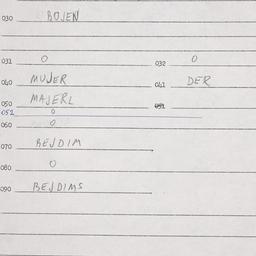 030 BOJEN
031 0 032 0
040 MUJER 041 DER
050 MAJERL 051
051 0
060 0
070 BEJDIM
080 0
090 BEJDIMS